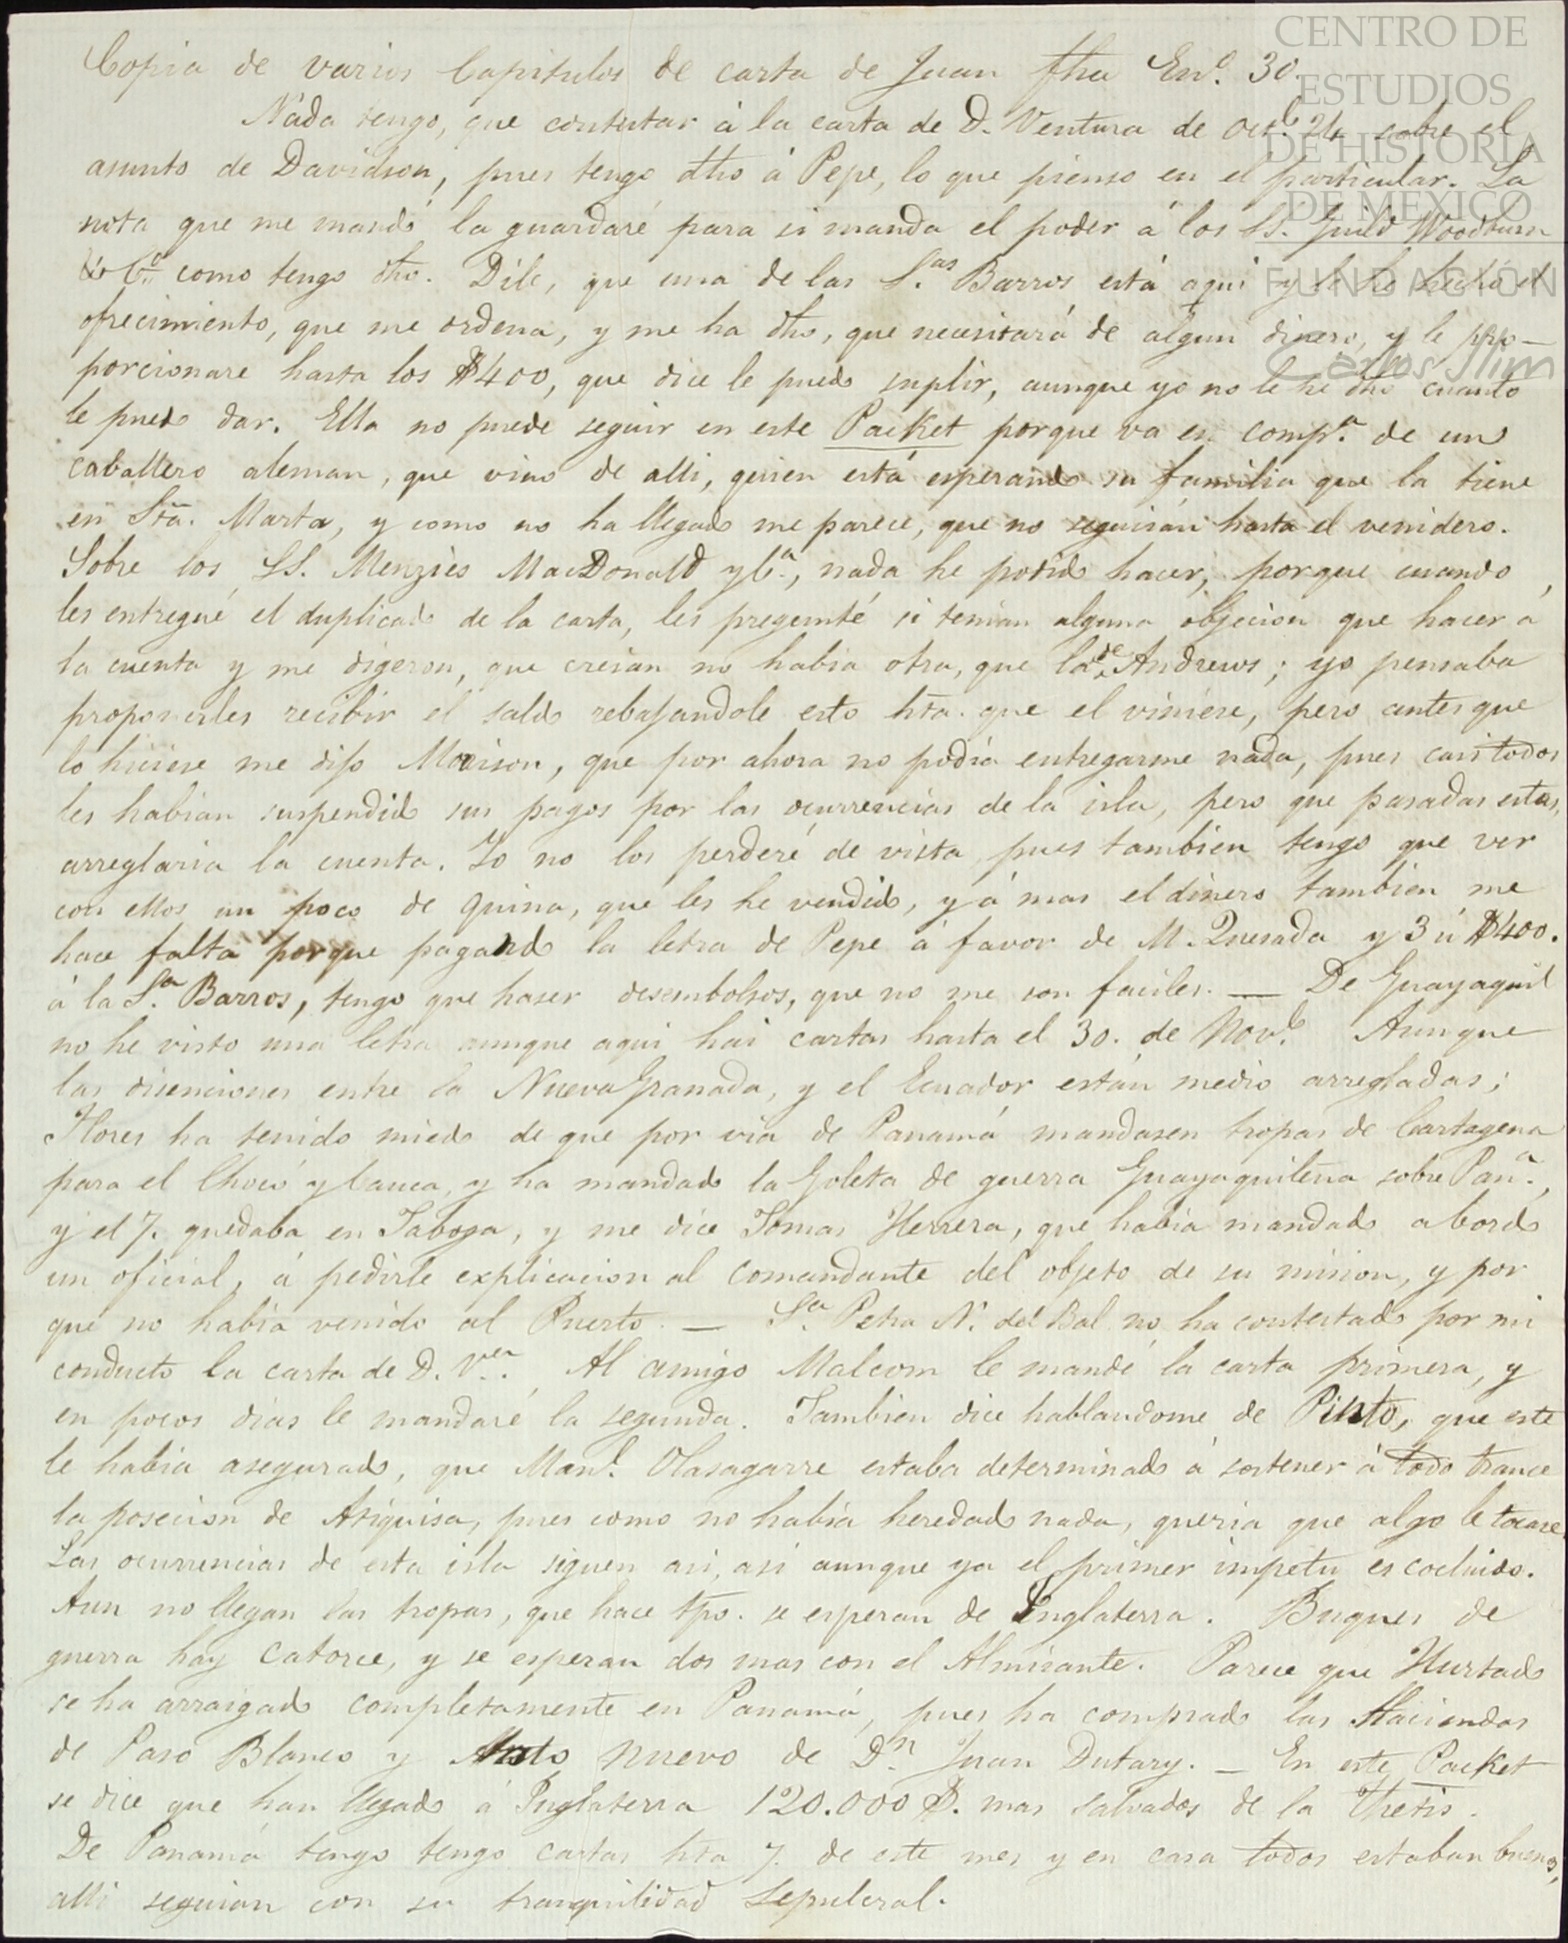 CENTRO DE
ESTUDIOS
DE HISTORIA
DE MEXICO
FUNDACIÓN
Carlos Slim
Copia de varios Capitulos de carta de Juan fha En.º 30.
Nada tengo, que contestar á la carta de D. Ventura de Oct.e 24 sobre el
asunto de Davidson, pues tengo dho á Pepe, lo que pienso en el particular. La
nota que me mandó la guardaré para si manda el poder á los SS. Guild Woodburn
y C.a como tengo dho. Dile, que una de las S.as Barros está aqui y le he hecho el
ofrecimiento, que me ordena, y me ha dho, que necesitará de algun dinero, y le pro-
porcionare hasta los $400, que dice le puedo suplir, aunque yo no le he dho cuanto
le puedo dar. Ella no puede seguir en este Packet porque va en comp.a de un
caballero aleman, que vino de alli, quien está esperando su familia que la tiene
en Sta. Marta, y como no ha llegado me parece, que no seguirán hasta el venidero.
Sobre los SS. Menzies MacDonald y C.a, nada he podido hacer, porque cuando
les entregué el duplicado de la carta, les pregunté si tenian alguna objecion que hacer á
la cuenta y me digeron, que creian no habia otra, que la de Andrews; yo pensaba
proponerles recibir el saldo rebajandole esto hta. que el viniese, pero antes que
lo hiciese me dijo Morison, que por ahora no podia entregarme nada, pues casi todos
les habian suspendido sus pagos por las ocurrencias de la isla, pero que pasadas estas,
arreglaria la cuenta. Yo no los perderé de vista pues tambien tengo que ver
con ellos un poco de quina, que les he vendido, y á mas el dinero tambien me
hace falta porque pagand la letra de Pepe á favor de M. Quesada y 3 ú $400.
á la S.a Barros, tengo que haser desembolsos, que no me son faciles. — De Guayaquil
no he visto una letra aunque aqui hai cartas hasta el 30. de Nov.e Aunque
las disenciones entre la Nueva Granada, y el Ecuador están medio arregladas;
Flores ha tenido miedo de que por via de Panamá mandasen tropas de Cartagena
para el Chocó y Cauca, y ha mandado la Goleta de guerra Guayaquileña sobre Pan.a,
y el 7. quedaba en Taboga, y me dice Tomas Herrera, que habia mandado abordo
un oficial, á pedirle explicacion al comandante del objeto de su mision, y por
que no habia venido al Puerto. — S.a Petra N. del Bal no ha contestado por mi
conducto la carta de D. V.en. Al amigo Malcom le mandé la carta primera, y
en pocos dias le mandaré la segunda. Tambien dice hablandome de Pinto, que este
le habia asegurado, que Man.l Olasagarre estaba determinado á sostener á todo trance
la posecion de Atiquisa, pues como no habia heredado nada, queria que algo le tocase.
Las ocurrencias de esta isla siguen asi, asi aunque ya el primer impetu es cocluido.
Aun no llegan las tropas, que hace tpo. se esperan de Inglaterra. Buques de
guerra hay catorce, y se esperan dos mas con el Almirante. Parece que Hurtado
se ha arraigado completamente en Panamá, pues ha comprado las Haciendas
de Paso Blanco y nuevo de D.n Juan Dutary. — En este Packet
se dice que han llegado á Inglaterra 120.000 $. mas salvados de la Thetis.
De Panamá tengo tengo cartas hta 7. de este mes y en casa todos estaban buenos,
alli seguian con su tranquilidad sepulcral.